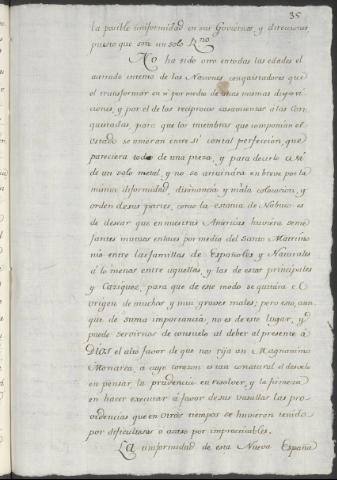 35
la posible uniformidad en sus Goviernos, y direcciones
puesto que son un solo Rno.
No ha sido otro en todas las edades el
intento de las Naciones conquistadoras que
el transformar en si por medio de unas mismas disposi
ciones, y por el de los reciprocos casamientos a las Con
quistadas, para que los miembros que componian el
Estado se unieran entre sì con tal perfección, que
pareciera todo de una pieza, y para decirlo asi
de un solo metal, y no se arruinára en breve por la
misma diformidad, disonancia, y mala colocacion, y
orden de sus partes, como la estatua de Nabuco: es
de desear que en nuestras Américas huviera seme
jantes mutuos enlaces por medio del Santo Matrimo
nio entre las familias de Españoles, y Naturales
á lo menos entre aquellas, y las de estos principales
y Caziques, para que de este modo se quitára el
origen de muchos, y muy graves males; pero esto, aun
que de suma importancia, no es de este lugar, y
puede servirnos de consuelo al deber al presente á
Dios el alto favor de que nos rija un Magnanimo
Monarca, a cuyo corazon es tan connatural el desvelo
en pensar, la prudencia en resolver, y la firmeza
en hacer executar á favor de sus vasallos las pro
videncias que en otros tiempos se huvieran tenido
por dificultosas o acaso por impracticables.
La uniformidad de esta Nueva España